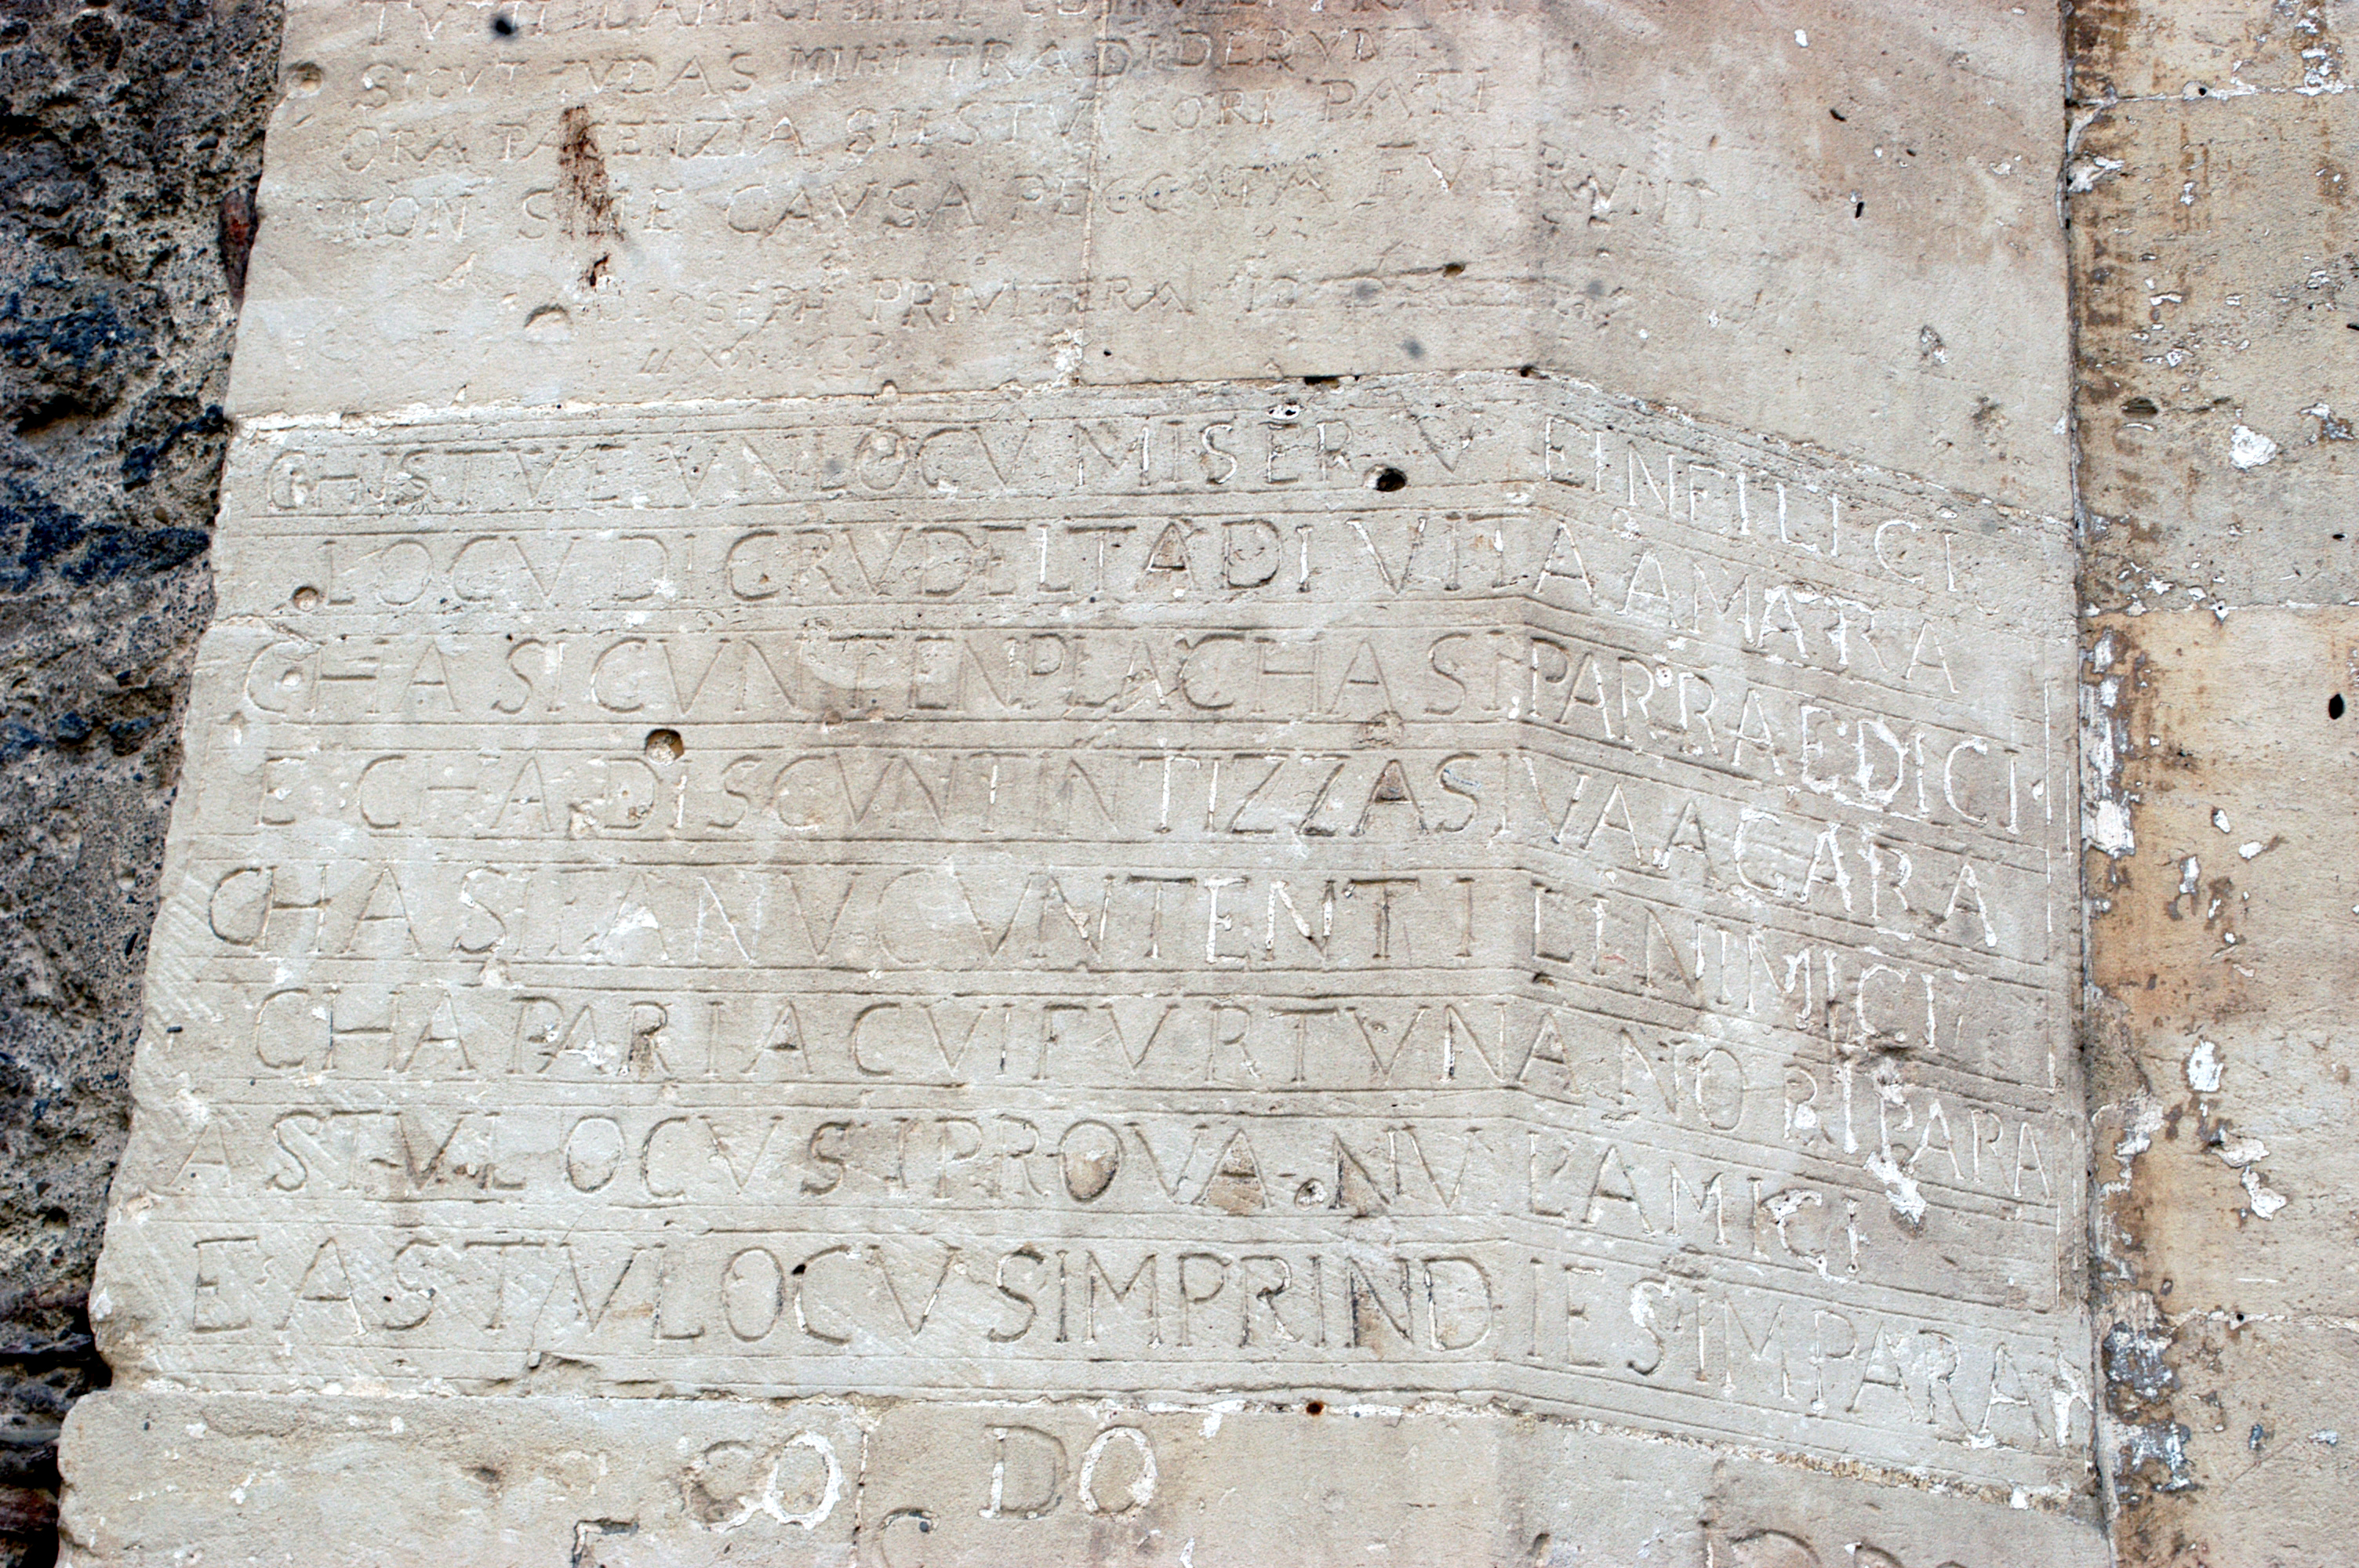 SICVT IVDAS MIHI TRADIDERVNT
ORA PACENZIA BHSTV CORI PATI
NON SINE CAVSA PECCATA FVERVNT
IOSEPH PRIVITERA
CHISTV E VN LOCV MISERV E INFILICI
LOCV DI CRVDELTA DI VITA AMARA
CHA SI CVNTENPLA CHA SI PARRA E DICI
E CHA DISCVNTINTIZZA SI VA A GARA
CHA SI FANV CVNTENTI L INIMICI
CHA PARI A CVI FVRTVNA NO RIPARA
A STV LOCV SI PROVANV L'AMICI
E A STV LOCV SIMPRINDI E SIMPARA
CO DO